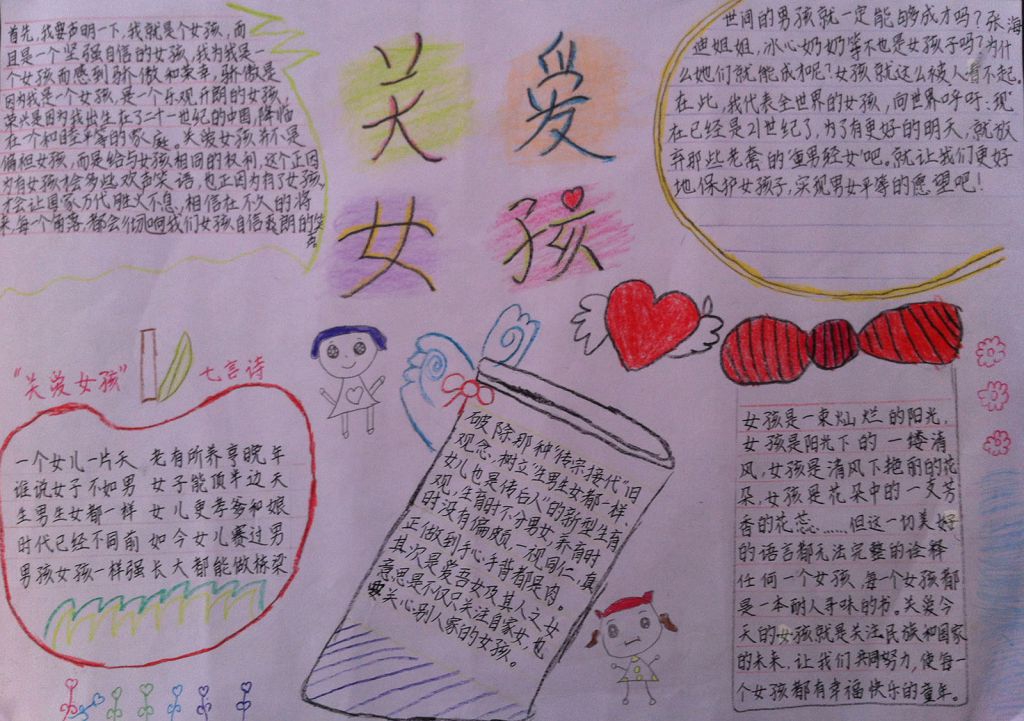 首先，我要声明一下，我就是个女孩，而
且是一个坚强自信的女孩，我为我是一
个女孩而感到骄傲和荣幸，骄傲是
因为我是一个女孩，是一个乐观开朗的女孩，
荣兴是因为我出生在了二十一世纪的中国，降临
在一个和睦平等的家庭。关爱女孩并不是
偏袒女孩，而是给与女孩相同的权利，这个正因
为有女孩才会多些欢声笑语，也正因为有了女孩，
才会让国家万代胜火不息，相信在不久的将
来，每一个角落，都会彻响我们女孩自信爽朗的笑
声
关爱
女孩
世间的男孩就一定能够成才吗？张海
迪姐姐，冰心奶奶等不也是女孩子吗？为什
么她们就能成才呢？女孩就这么被人看不起。
在此，我代表全世界的女孩，向世界呼吁：现
在已经是21世纪了，为了有更好的明天，就放
弃那些老套的“重男轻女”吧。就让我们更好
地保护女孩子，实现男女平等的愿望吧！
“关爱女孩” 七言诗
一个女儿一片天 老有所养享晚年
谁说女子不如男 女子能顶半边天
生男生女都一样 女儿更孝爹和娘
时代已经不同前 如今女儿赛过男
男孩女孩一样强 长大都能做栋梁
破除那种“传宗接代”旧
观念，树立“生男生女都一样、
女儿也是传后人”的新型生育
观，生育时不分男女，养育时
时没有偏颇，一视同仁，真
正做到手心手背都是肉。
其次是爱吾女及其人之女
意思是不仅只关注自家女，也
要关心别人家的女孩。
女孩是一束灿烂的阳光，
女孩是阳光下的一缕清
风，女孩是清风下艳丽的花
朵，女孩是花朵中的一支芳
香的花蕊……但这一切美好
的语言都无法完整的诠释
任何一个女孩，每一个女孩都
是一本耐人寻味的书。关爱今
天的女孩就是关注民族和国家
的未来，让我们共同努力，使每一
个女孩都有幸福快乐的童年。